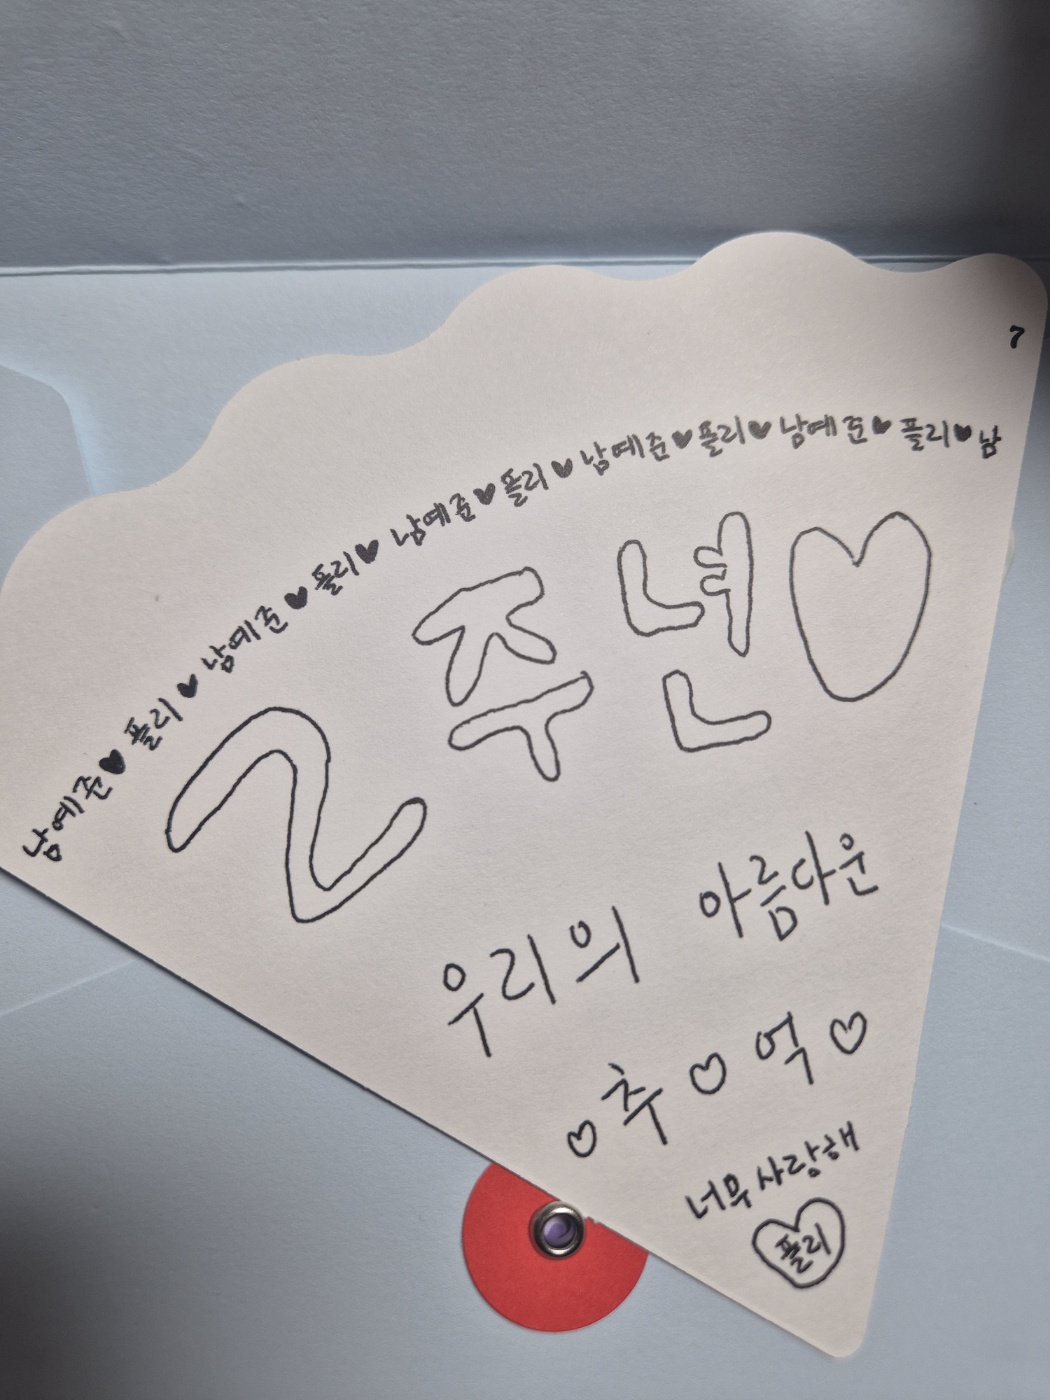 7
남예준♥플리♥남예준♥플리♥남예준♥플리♥남예준♥플리♥남예준♥플리♥남
2주년♡
우리의 아름다운
♡추♡억♡
너무 사랑해
플리